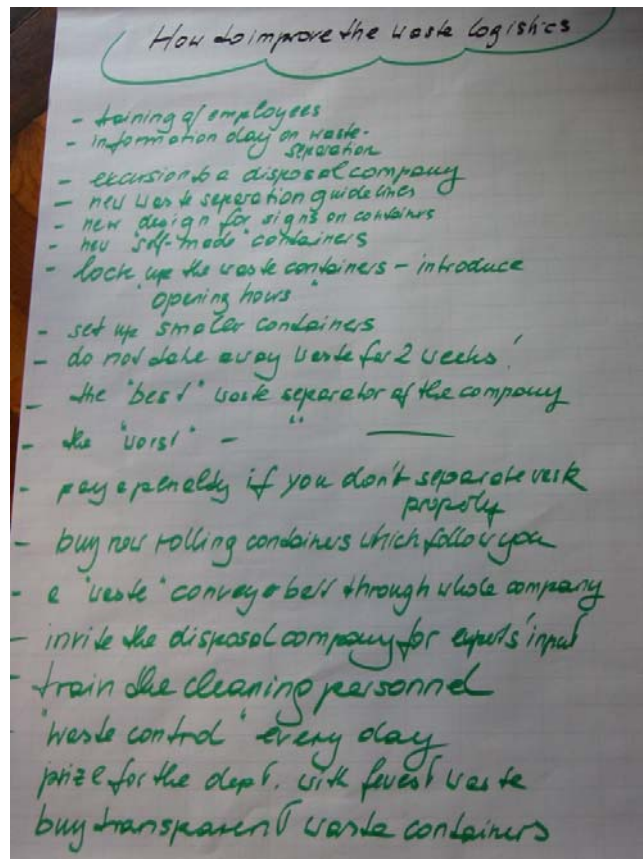 How to improve the waste logistics
- training of employees
- information day on waste-
separation
- excursion to a disposal company
- new waste separation guidelines
- new design for signs on containers
- new "self-made" containers
- lock up the waste containers - introduce
"opening hours"
- set up smaller containers
- do not take away waste for 2 weeks!
- the "best" waste separator of the company
- the "worst" - " ——
- pay a penalty if you don't separate waste
properly
- buy new rolling containers which follow you
- a "waste" conveyor belt through whole company
- invite the disposal company for experts' input
- train the cleaning personnel
"waste control" every day
prize for the dept. with fewest waste
buy transparent waste containers